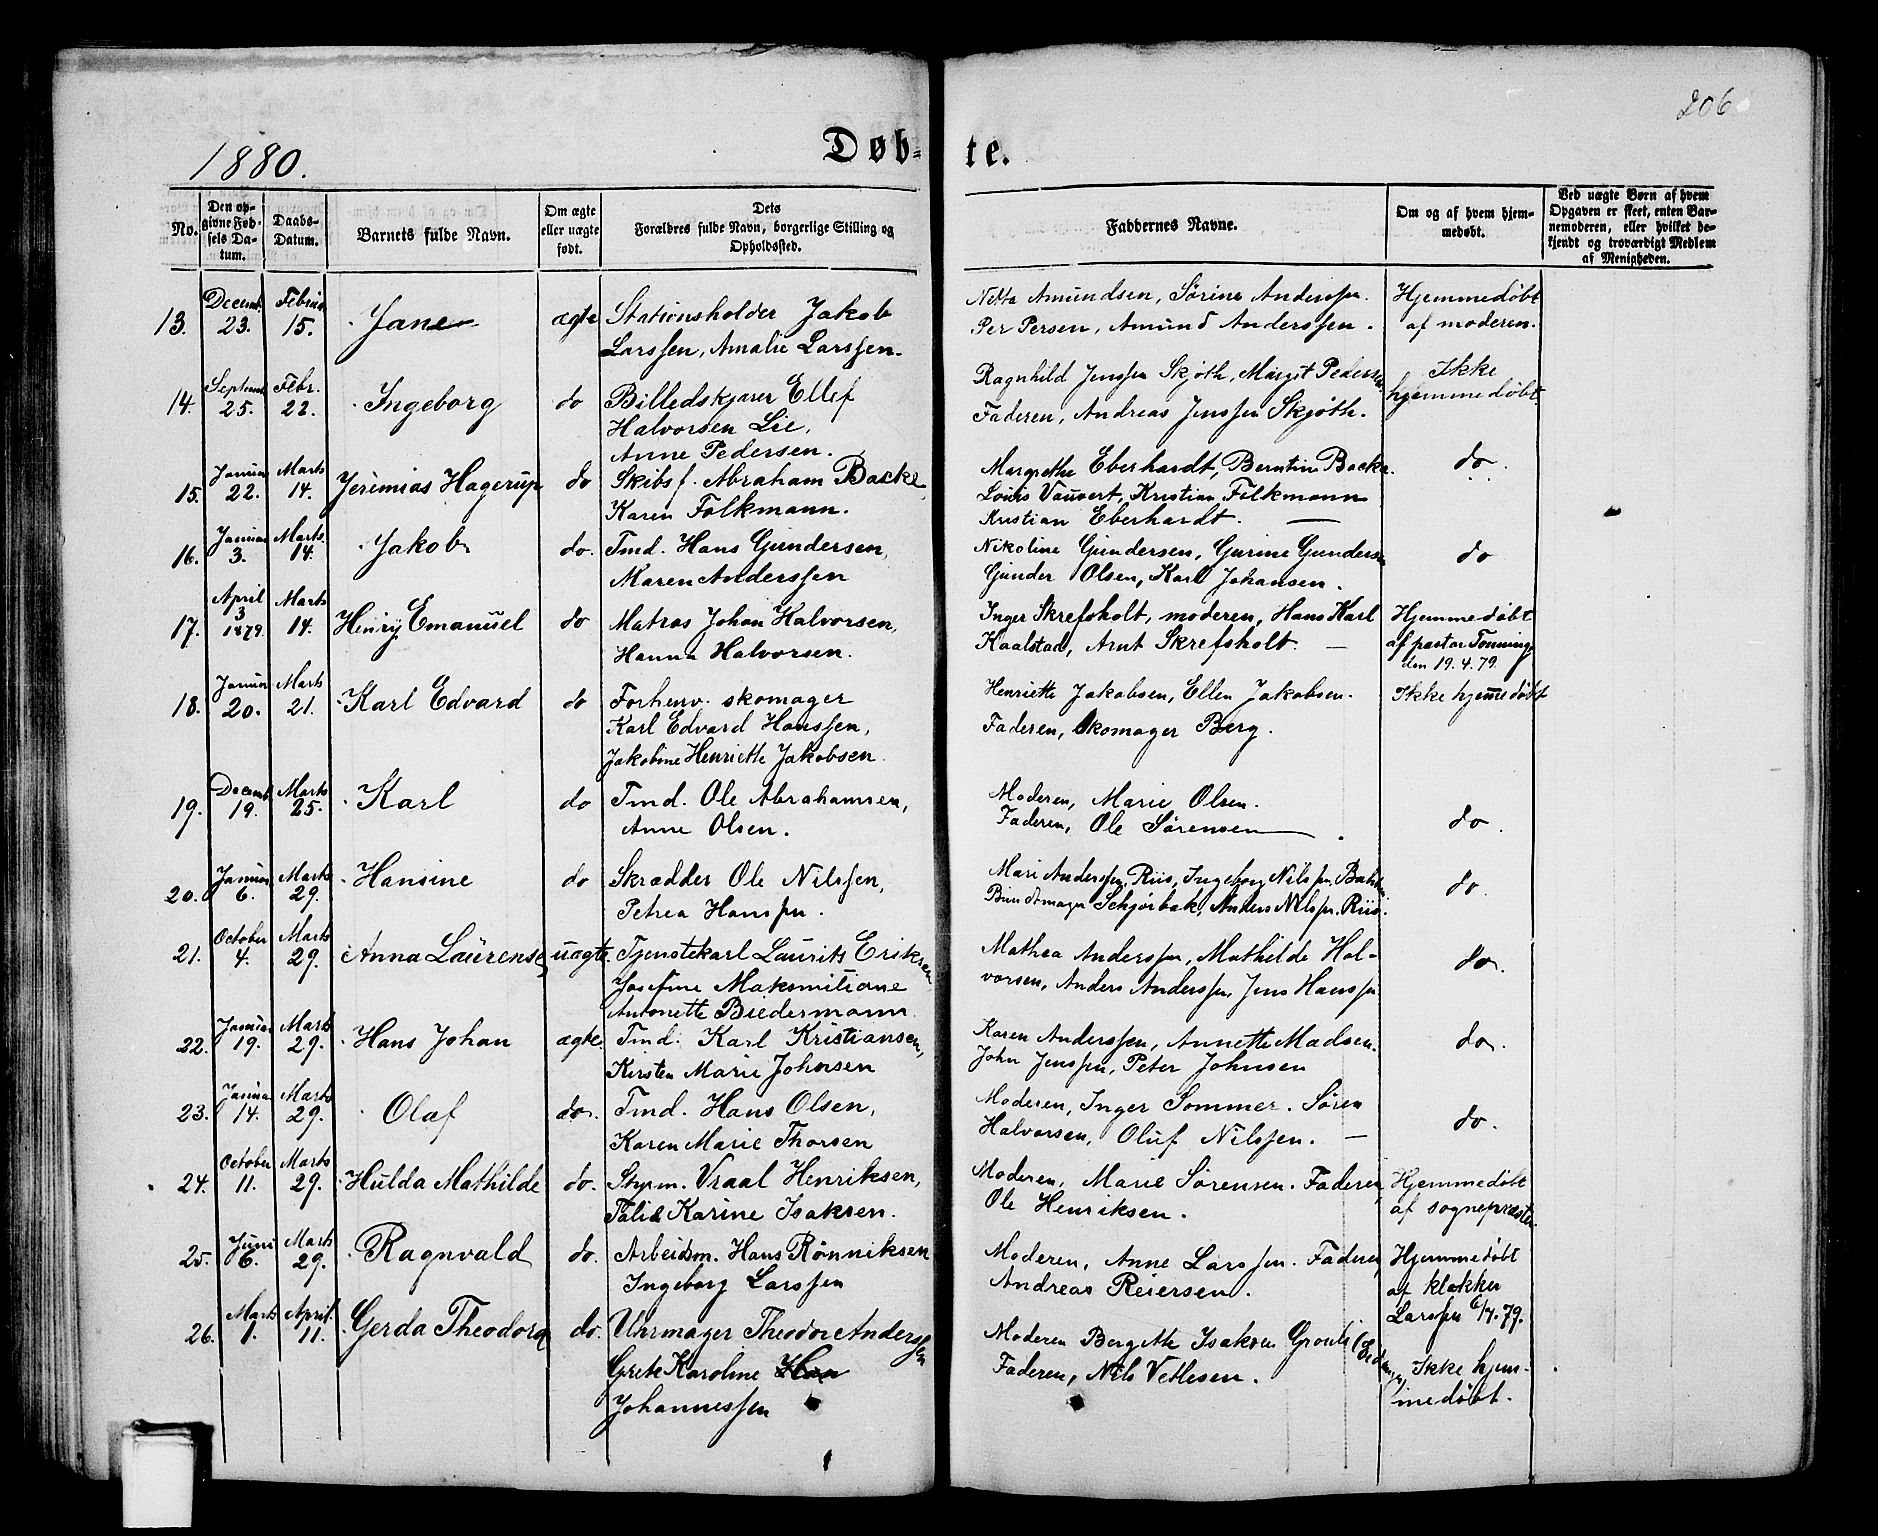 206
1880.
Døb-te.
No.
Den op-
givne Fød-
sels Da-
tum.
Daabs-
Datum.
Barnets fulde Navn.
Om ægte
eller uægte
født.
Dets
Forældres fulde Navn, borgerlige Stilling og
Opholdssted.
Faddernes Navne.
Om og af hvem hjem-
medøbt.
Ved uægte Børn af hvem
Opgaven er skeet, enten Bar-
nemoderen, eller hvilket be-
kjendt og troværdigt Medlem
af Menigheden.
13. Decemb. 23. Februar 15. Jane ægte Stationsholder Jakob
Larssen, Amalie Larssen.
Netta Amundsen, Sørine Anderssen.
Per Persen, Amund Anderssen.
Hjemmedøbt
af moderen.
14. Septemb. 25. Febr. 22. Ingeborg do Billedskjærer Ellef
Halvorsen Lie,
Anne Pedersen.
Ragnhild Jenssen Skjøth, Margit Pedersen
Faderen, Andreas Jenssen Skjøth.
Ikke
hjemmedøbt.
15. Januar 22. Marts 14. Jeremias Hagerup do Skibsf. Abraham Backe
Karen Folkmann.
Margrethe Eberhardt, Berntine Backe.
Louis Vauvert, Kristian Folkmann
Kristian Eberhardt.
do
16. Januar 3. Marts 14. Jakob do. Tmd. Hans Gundersen,
Maren Anderssen
Nikoline Gundersen, Gurine Gundersen
Gunder Olsen, Karl Johansen.
do
17. April 3 1879. Marts 14. Henry Emanuel do Matros Johan Halvorsen,
Hanna Halvorsen.
Inger Skrefsholt, moderen, Hans Karl
Kaalstad, Arnt Skrefsholt.
Hjemmedøbt
af pastor Tonning
den 19.4.79.
18. Januar 20. Marts 21. Karl Edvard do Forhenv. skomager
Karl Edvard Hanssen,
Jakobine Henriette Jakobsen.
Henriette Jakobsen, Ellen Jakobsen.
Faderen, Skomager Berg.
Ikke hjemmedøbt
19. Decemb. 19. Marts 25. Karl do Tmd. Ole Abrahamsen,
Anne Olsen.
Moderen, Marie Olsen.
Faderen, Ole Sørensen
do.
20. Januar 6. Marts 29. Hansine do Skrædder Ole Nilssen,
Petrea Hanssen.
Mari Anderssen, Riis, Ingeborg Nilssen,
Bundtmager Schjørbæk, Anders Nilssen, Riis.
do.
21. October 4. Marts 29. Anna Laurense uægte. Tjenstekarl Laurits Eriksen,
Josefine Maksmiliane
Antonette Biedermann.
Mathea Anderssen, Mathilde Hal-
vorsen, Anders Anderssen, Jens Hanssen
do.
22. Januar 19. Marts 29. Hans Johan ægte. Tmd. Karl Kristiansen,
Kirsten Marie Johnsen
Karen Anderssen, Annette Madsen.
John Jenssen, Peter Johnsen
do.
23. Januar 14. Marts 29. Olaf do. Tmd. Hans Olsen,
Karen Marie Thorsen
Moderen, Inger Sommer. Søren
Halvorsen, Oluf Nilssen.
do.
24. October 11. Marts 29. Hulda Mathilde do. Styrm. Vraal Henriksen,
Talie Karine Isaksen.
Moderen, Marie Sørensen. Faderen,
Ole Henriksen.
Hjemmedøbt
af sognepræsten
25. Juni 6. Marts 29. Ragnvald do. Arbeidsm. Hans Rønniksen
Ingeborg Larssen
Moderen, Anne Larssen. Faderen,
Andreas Reiersen.
Hjemmedøbt
af klokker
Larssen 6/7.79.
26. Marts 1. April 11. Gerda Theodora do. Uhrmager Theodor Anderssen
Grete Karoline
Johannessen
Moderen Bergitte Isaksen
Faderen, Nils Vetlesen.
Ikke hjem-
medøbt.